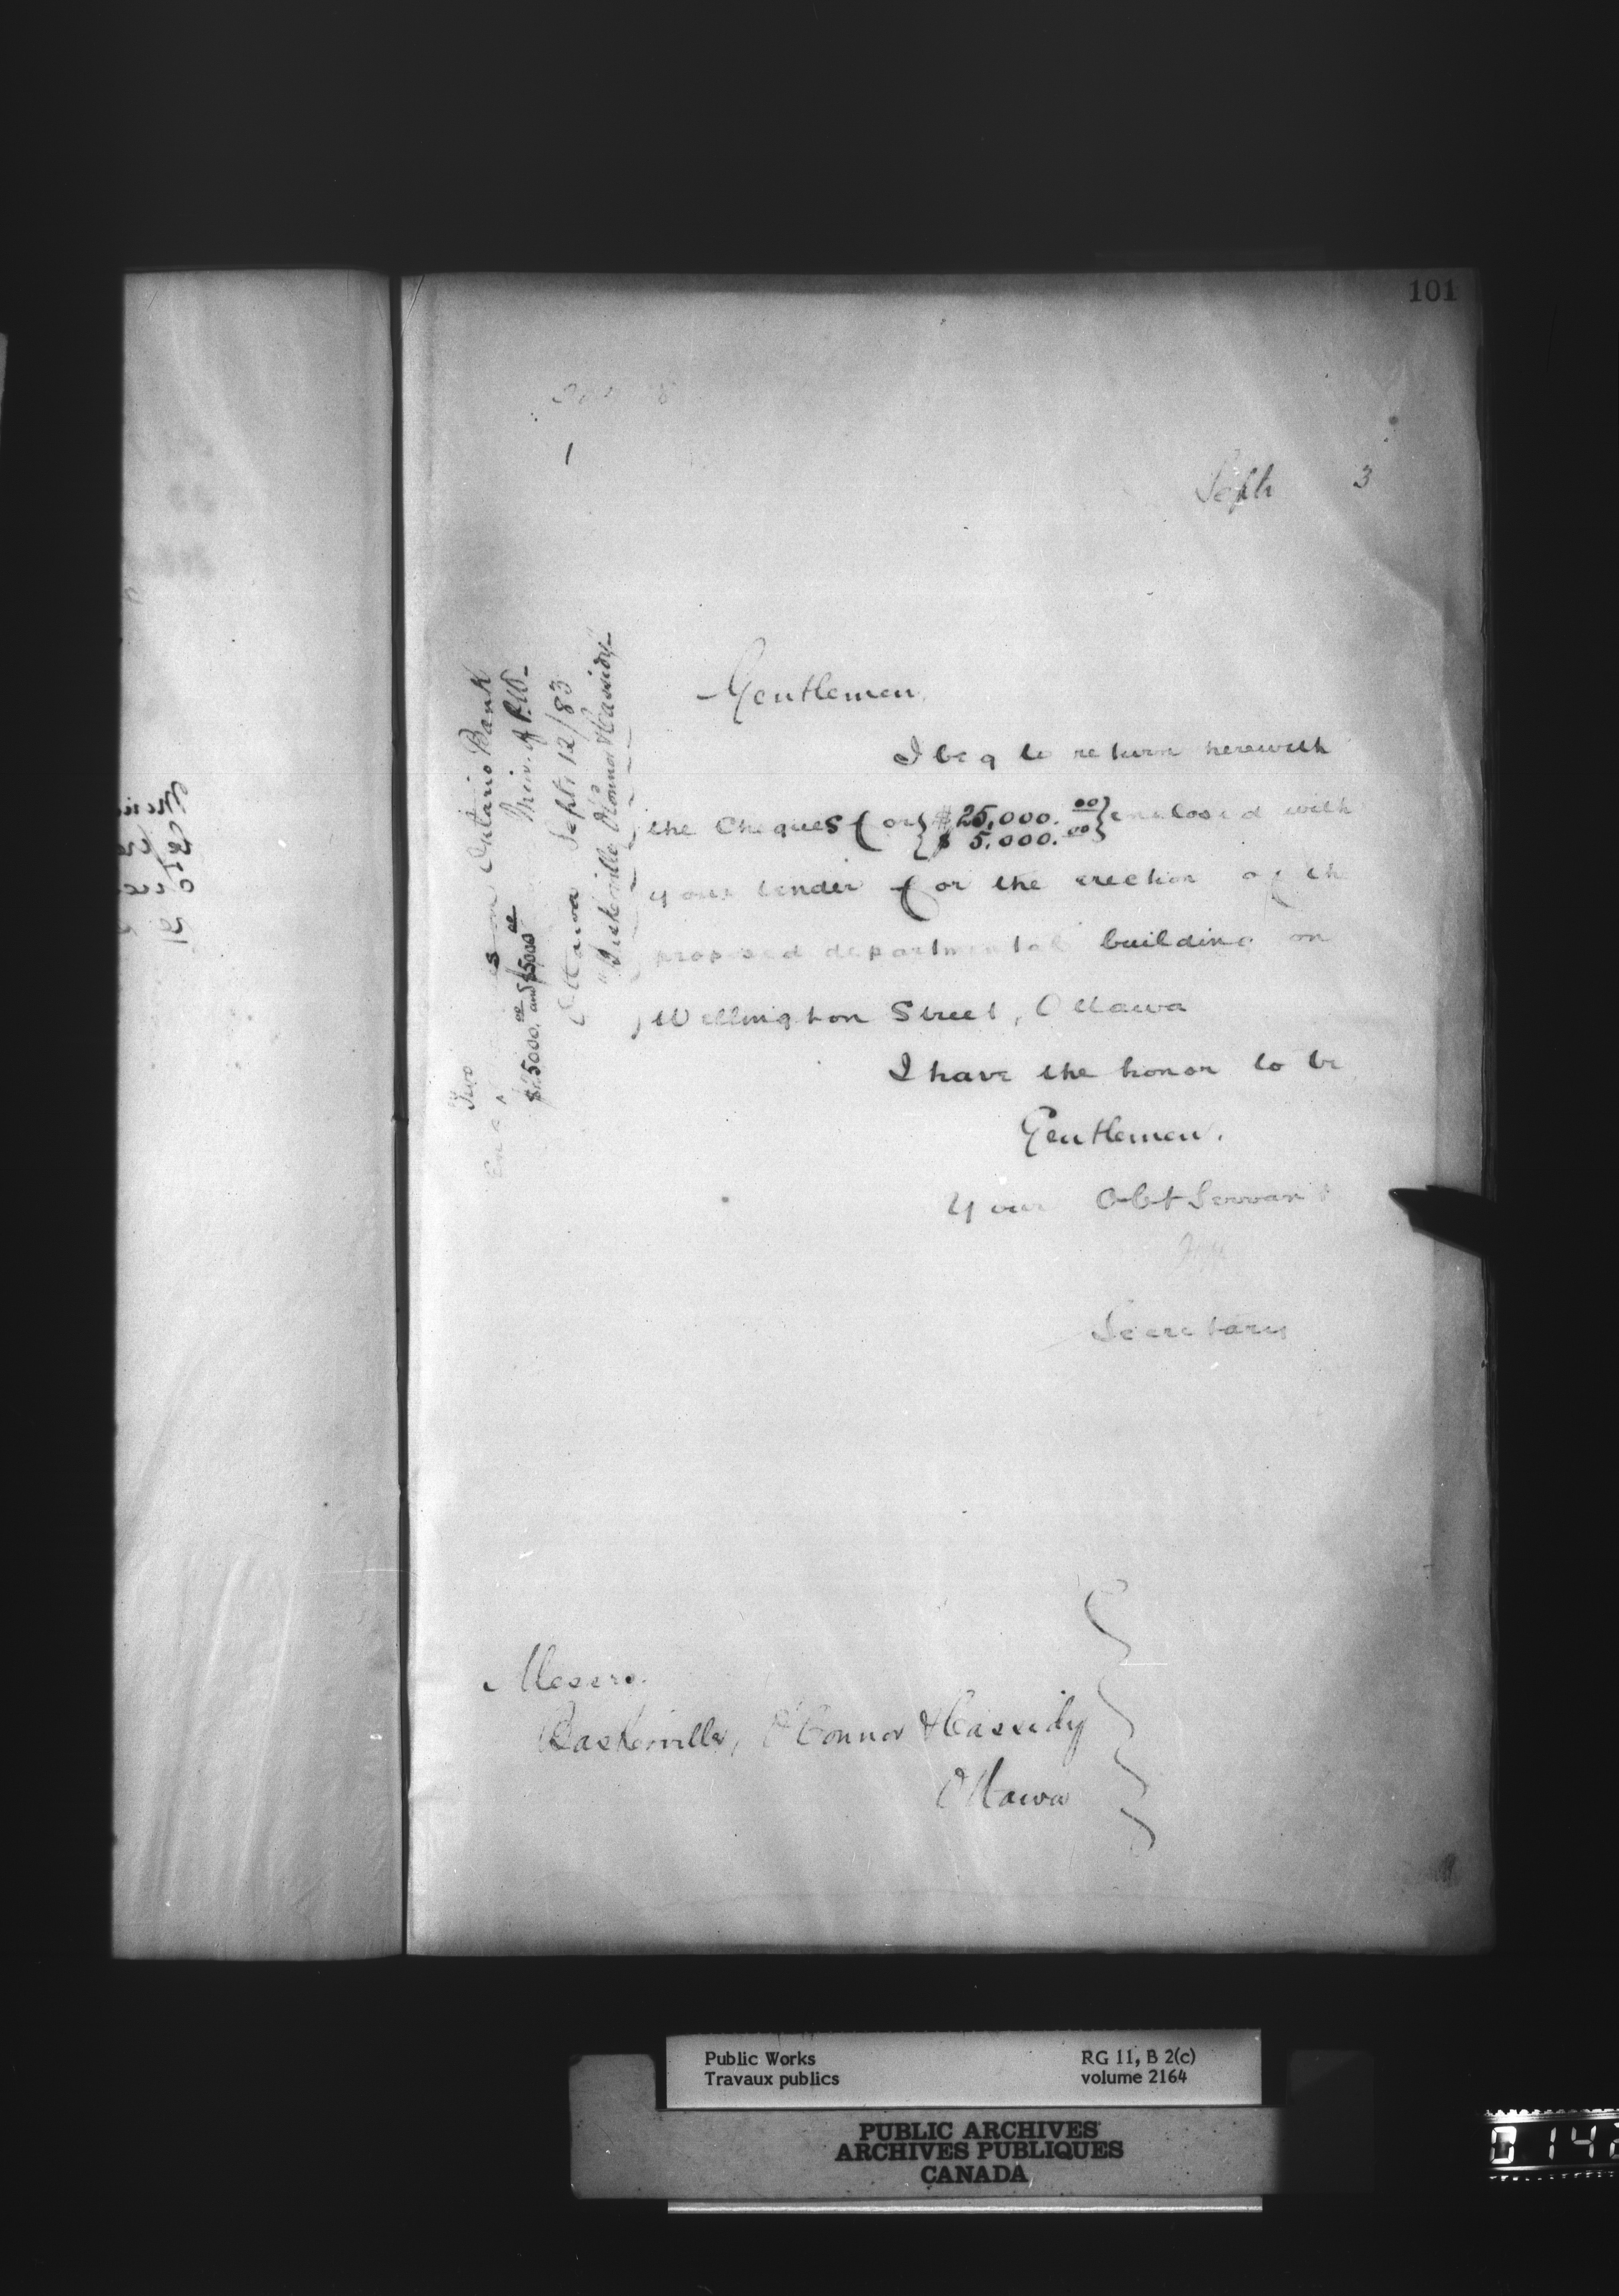 101
1
Septr 3
Two
es on Ontario Bank
Min. of P.W.
$25000.00 and $5000.00
Ottawa Septr 12/83
"Baskerville O'Connor & Cassidy"
Gentlemen,
I beg to return herewith
the Cheques for { $25,000.00
$ 5.000.00 } enclosed with
your tender for the erection of the
proposed departmental building on
Wellington Street, Ottawa
I have the honor to be
Gentlemen.
Your Obt Servant
Secretary
Messrs.
Baskerville, O'Connor & Cassidy
Ottawa
Public Works
Travaux publics
RG 11, B 2(c)
volume 2164
PUBLIC ARCHIVES
ARCHIVES PUBLIQUES
CANADA